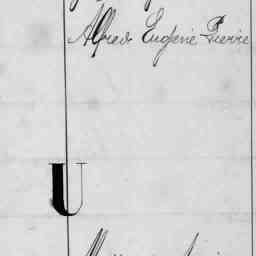 Alfred Eugène Pierre
U